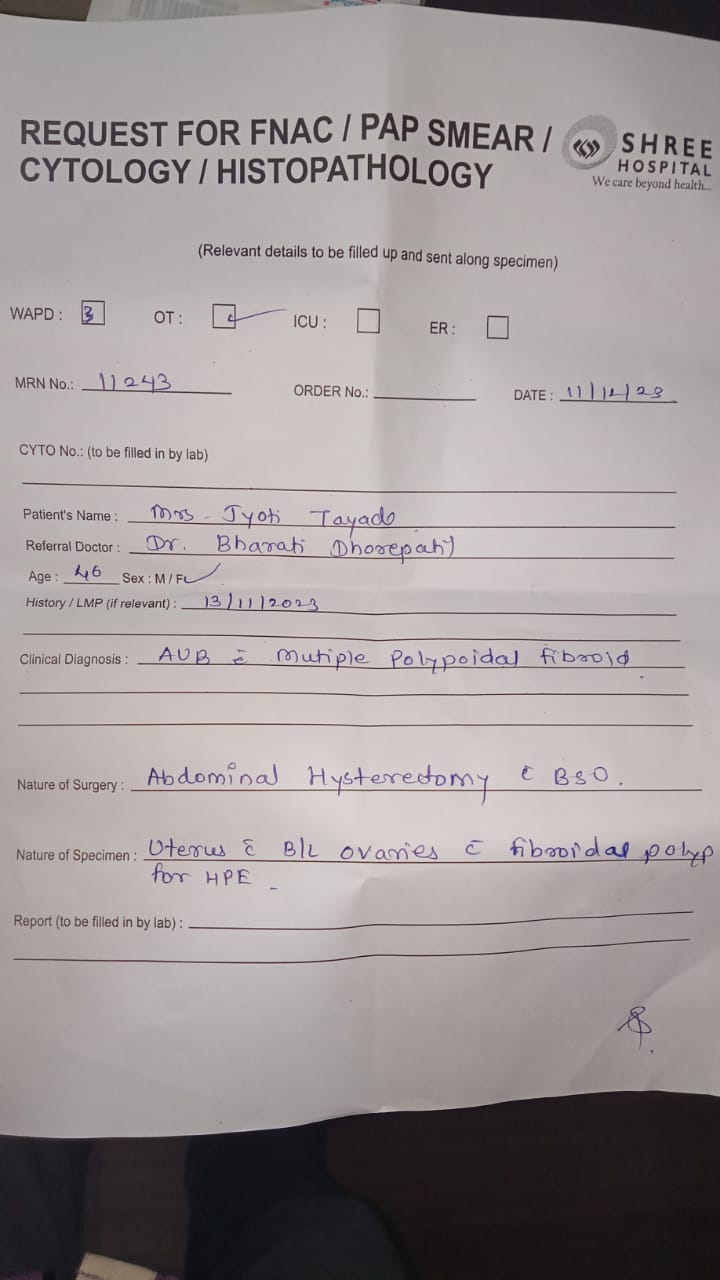 REQUEST FOR FNAC / PAP SMEAR /
CYTOLOGY / HISTOPATHOLOGY
SHREE
HOSPITAL
We care beyond health...
(Relevant details to be filled up and sent along specimen)
WAPD : 3 OT : ICU : ER :
MRN No.: 11243 ORDER No.: DATE : 11/12/23
CYTO No.: (to be filled in by lab)
Patient's Name : Mrs - Jyoti Tayade
Referral Doctor : Dr. Bharati Dhorepatil
Age : 46 Sex : M / F
History / LMP (if relevant) : 13/11/2023
Clinical Diagnosis : AUB c̄ Mutiple Polypoidal fibroid
Nature of Surgery : Abdominal Hysterectomy c̄ BSO.
Nature of Specimen : Uterus c̄ B/L ovaries c̄ fibroidal polyp
for HPE -
Report (to be filled in by lab) :